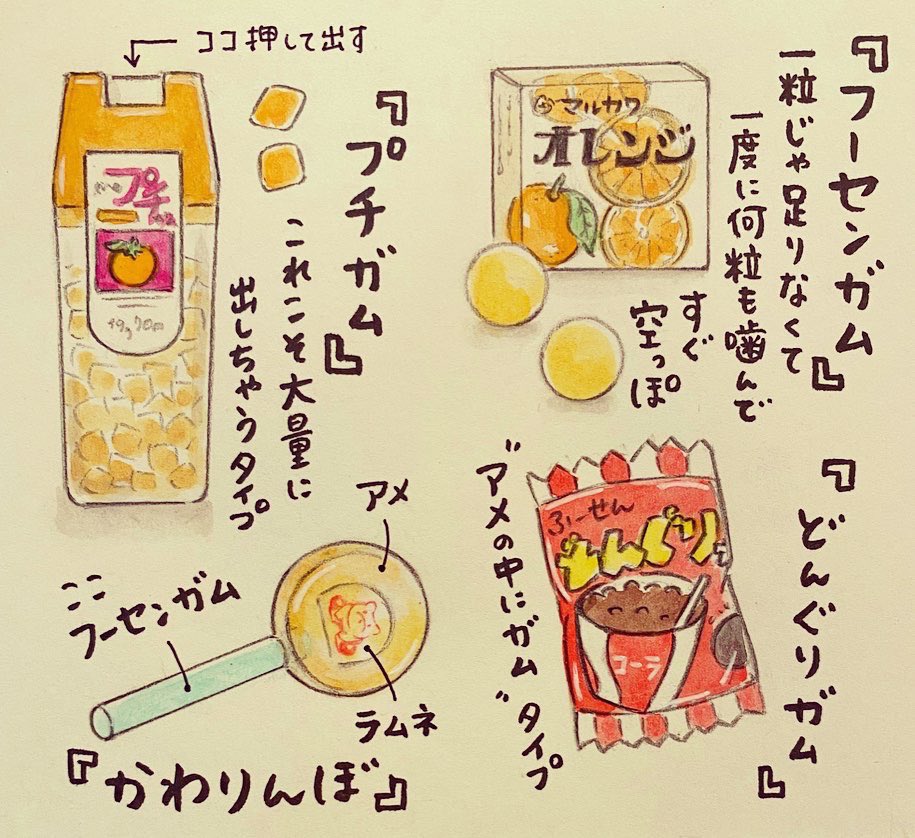 『フーセンガム』
一粒じゃ足りなくて
一度に何粒も噛んで
すぐ
空っぽ
マルカワ
オレンジ
ココ押して出す
『プチガム』
これこそ大量に
出しちゃうタイプ
プチ
49g 70円
『どんぐりガム』
"アメの中にガム"タイプ
ふーせん
どんぐり
コーラ
アメ
ここ
フーセンガム
ラムネ
『かわりんぼ』